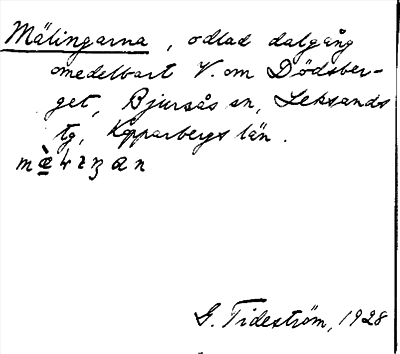 Mälingarna, odlad dalgång
omedelbart V. om Dödsber-
get, Bjursås sn, Leksands
tg, Kopparbergs län.
G. Tideström, 1928